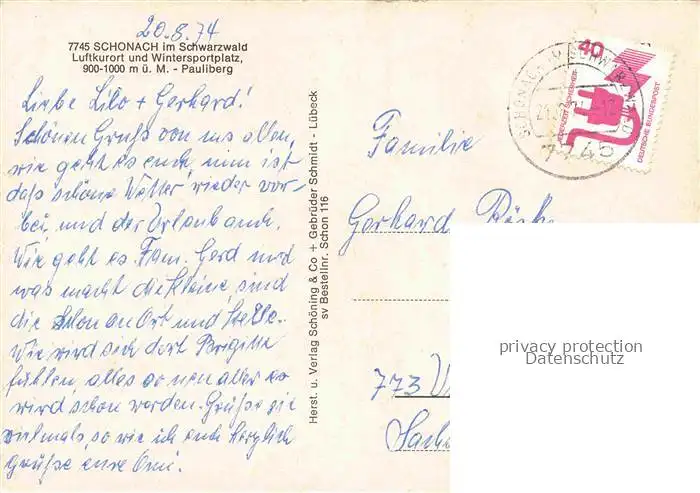 20.8.74
7745 SCHONACH im Schwarzwald
Luftkurort und Wintersportplatz,
900-1000 m ü. M. - Pauliberg
Liebe Lilo + Gerhard!
Schönen Gruß von uns allen,
wie geht es euch, nun ist
das schöne Wetter wieder vor-
bei, und der Urlaub auch.
Wie geht es Fam. Gerd und
was macht die Kleine, sind
die schon an Ort und Stelle.
Wie wird sich dort Brigitte
fühlen, alles so neu aber es
wird schon werden. Grüße sie
vielmals, so wie ich euch herzlich
grüße eure Omi.
Herst. u. Verlag Schöning & Co + Gebrüder Schmidt - Lübeck
sv Bestellnr. Schon 116
Familie
Gerhard
773
40
JEDERZEIT SICHERHEIT
DEUTSCHE BUNDESPOST
7745
privacy protection
Datenschutz